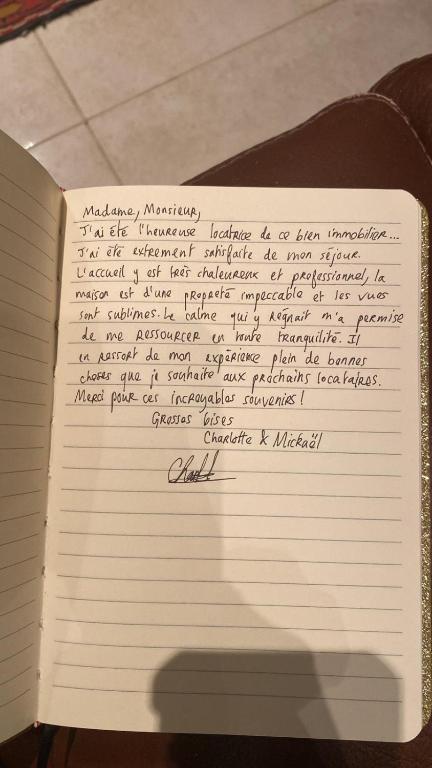 Madame, Monsieur,
J'ai été l'heureuse locatrice de ce bien immobilier...
J'ai été extrement satisfaite de mon séjour.
L'accueil y est très chaleureux et professionnel, la
maison est d'une propreté impeccable et les vues
sont sublimes. Le calme qui y régnait m'a permise
de me ressourcer en toute tranquilité. Il
en ressort de mon expérience plein de bonnes
choses que je souhaite aux prochains locataires.
Merci pour ces incroyables souvenirs !
Grosses bises
Charlotte & Mickaël